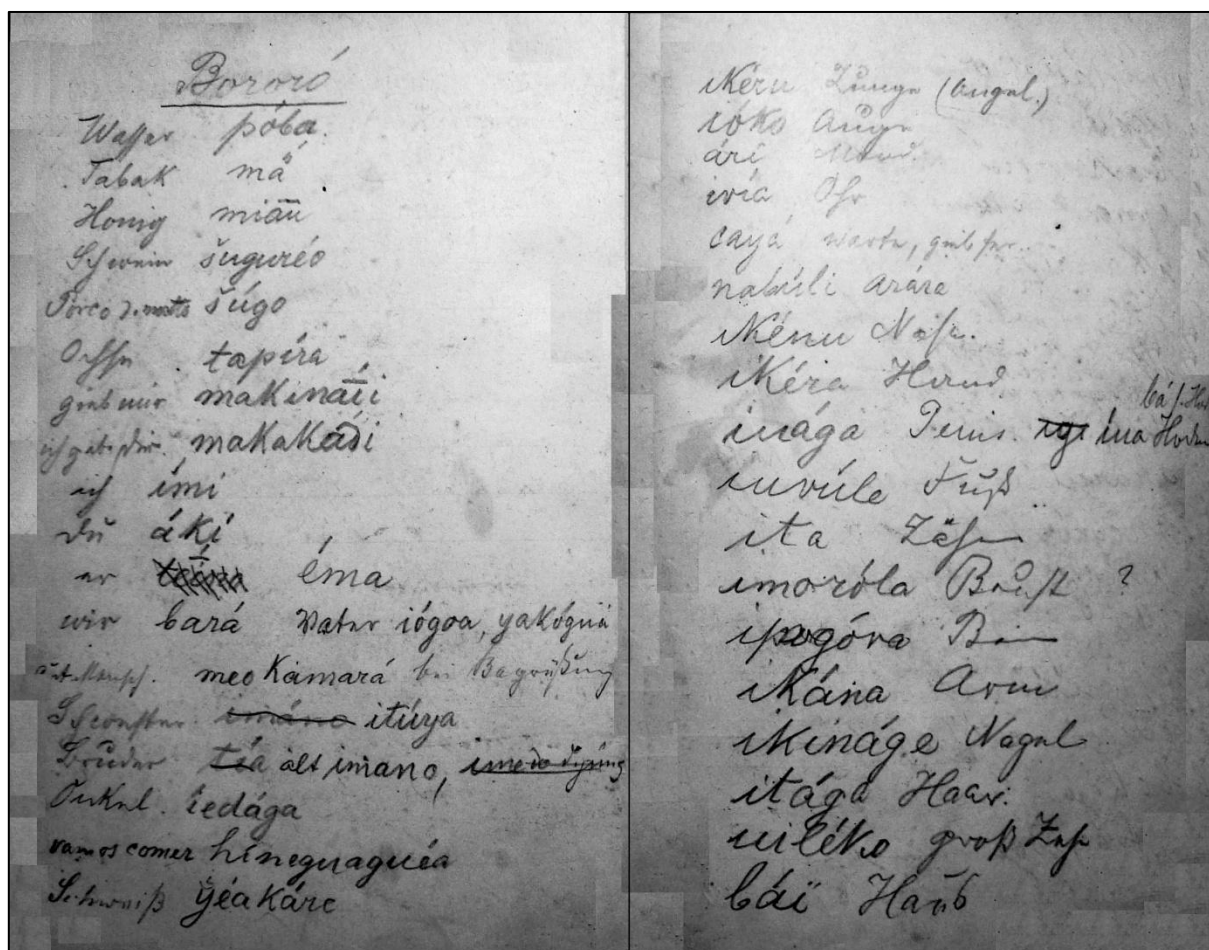 Bororó
Wasser póba.
Tabak mä
Honig miau
Schwein šuguréo
Porco d. matto šúgo
Ochse tapíra
gieb mir makinái
ich gebe dir makakádi
ich ími
du áki
er éma
wir bará Vater iógoa, yakóguá
Mensch. meo Kámará bei Begrüßung
Schwester imána itúya
Bruder tía alt imano,
Onkel iedága
vamos comer híneguaguéa
Schweiß yéakáre
ikéru Zunge (Angel.)
ióko Auge
ári Mond.
ivía Ohr
cayá warte, gieb her.
nabúli arára
ikénu Nase.
ikéra Hand
inága Penis. ina Hoden
iuvúle Fuß
ita Zähne
imoróla Brust ?
ipogóra Bein
ikána Arm
ikináge Nagel
itága Haar.
iuiléko groß Zehe
bái Haus